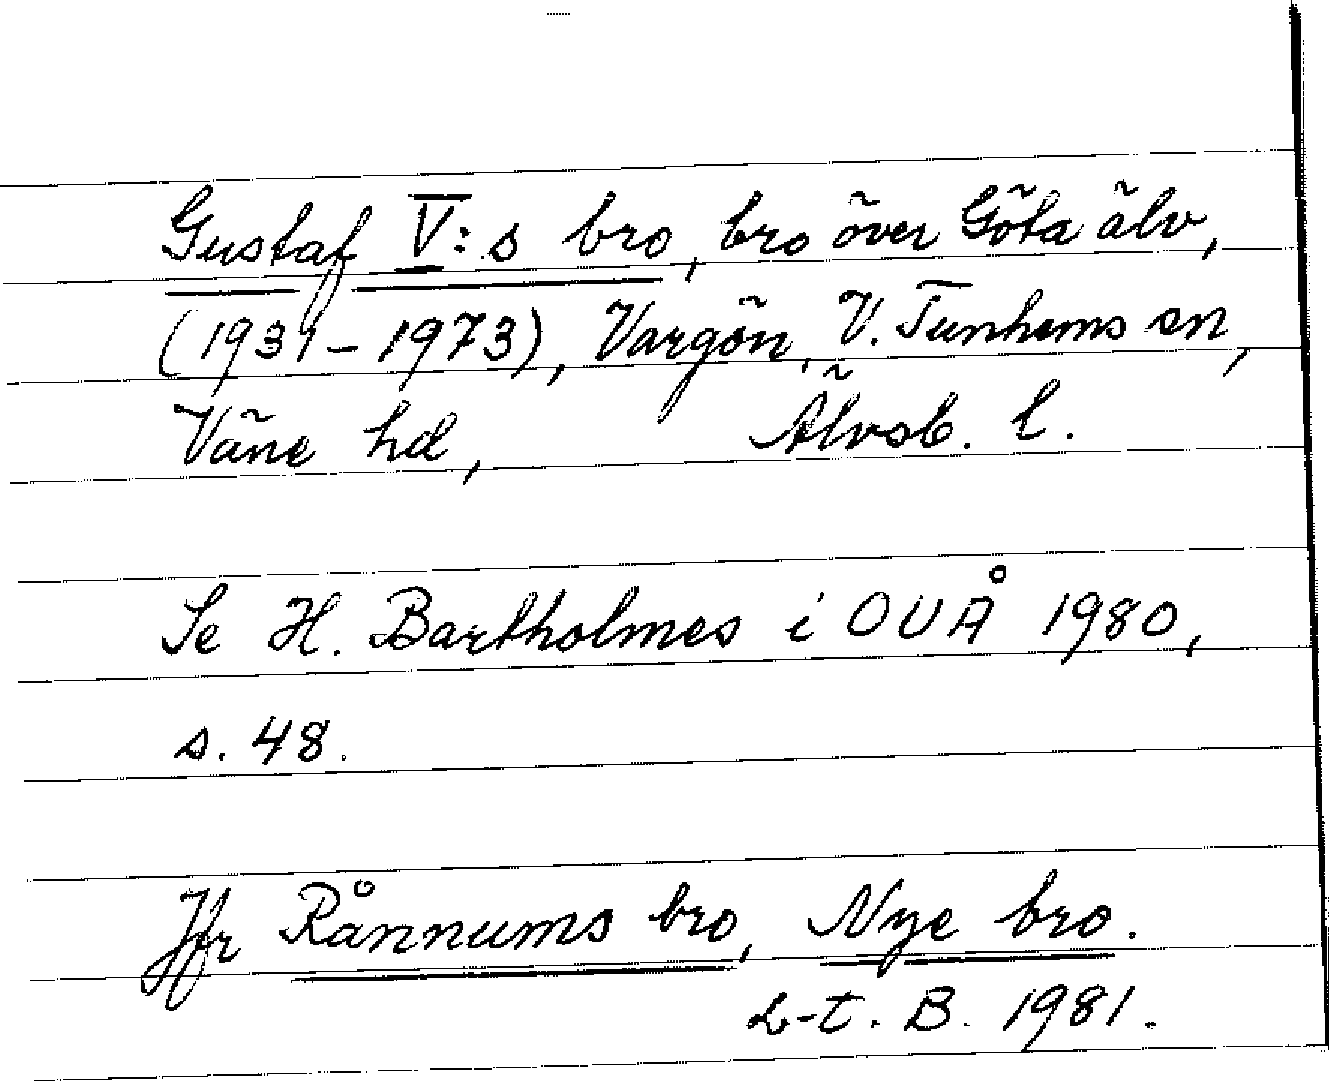 Gustaf V:s bro, bro över Göta älv,
(1931–1973), Vargön, V. Tunhems sn,
Väne hd, Älvsb. l.
Se H. Bartholmes i OUÅ 1980,
s. 48.
Jfr Rånnums bro, Nye bro.
L-t. B. 1981.